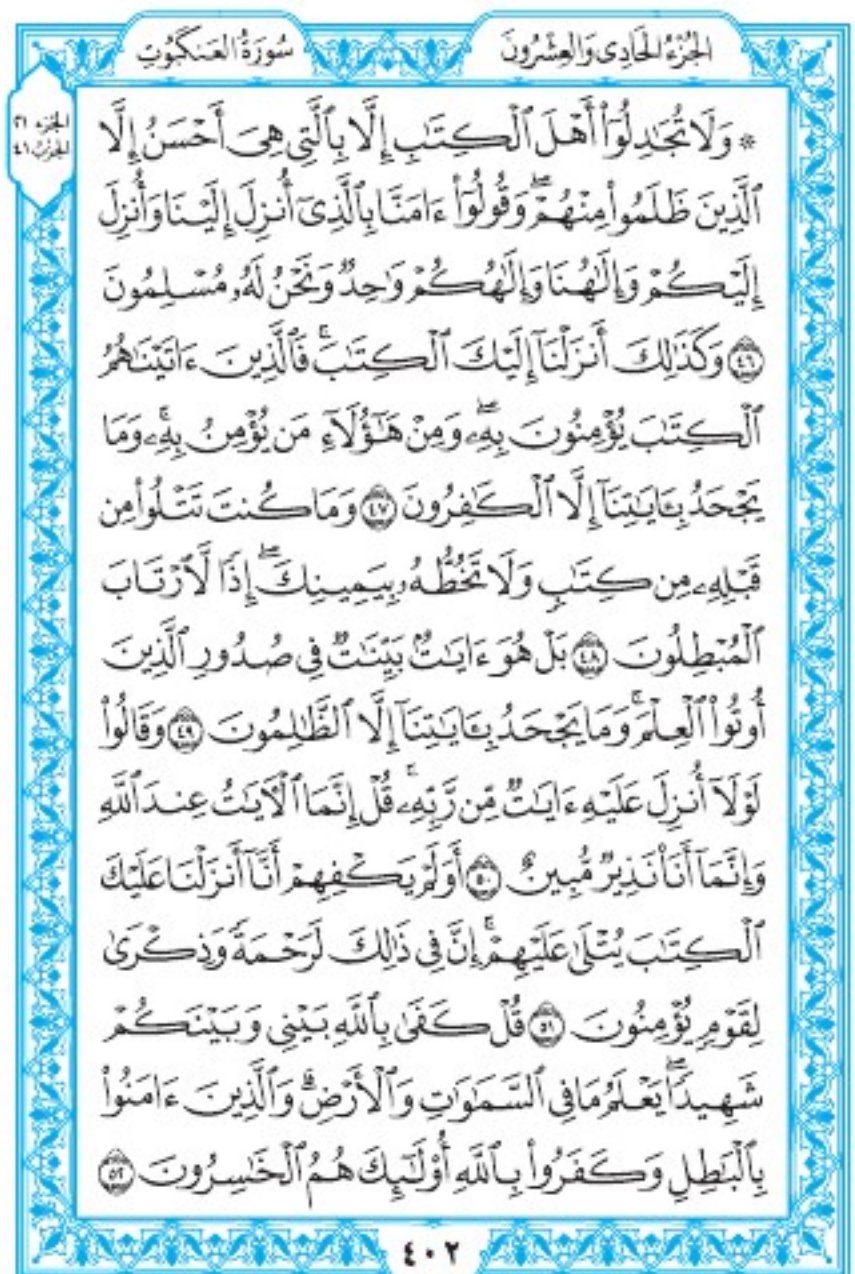 الجُزْءُ الحَادِى وَالعِشْرُونَ
سُورَةُ العَنكَبُوتِ
الجزء ٢١
الحزب ٤١
۞ وَلَا تُجَٰدِلُوٓاْ أَهۡلَ ٱلۡكِتَٰبِ إِلَّا بِٱلَّتِي هِيَ أَحۡسَنُ إِلَّا
ٱلَّذِينَ ظَلَمُواْ مِنۡهُمۡۖ وَقُولُوٓاْ ءَامَنَّا بِٱلَّذِيٓ أُنزِلَ إِلَيۡنَا وَأُنزِلَ
إِلَيۡكُمۡ وَإِلَٰهُنَا وَإِلَٰهُكُمۡ وَٰحِدٞ وَنَحۡنُ لَهُۥ مُسۡلِمُونَ
٤٦ وَكَذَٰلِكَ أَنزَلۡنَآ إِلَيۡكَ ٱلۡكِتَٰبَۚ فَٱلَّذِينَ ءَاتَيۡنَٰهُمُ
ٱلۡكِتَٰبَ يُؤۡمِنُونَ بِهِۦۖ وَمِنۡ هَٰٓؤُلَآءِ مَن يُؤۡمِنُ بِهِۦۚ وَمَا
يَجۡحَدُ بِـَٔايَٰتِنَآ إِلَّا ٱلۡكَٰفِرُونَ ٤٧ وَمَا كُنتَ تَتۡلُواْ مِن
قَبۡلِهِۦ مِن كِتَٰبٖ وَلَا تَخُطُّهُۥ بِيَمِينِكَۖ إِذٗا لَّٱرۡتَابَ
ٱلۡمُبۡطِلُونَ ٤٨ بَلۡ هُوَ ءَايَٰتُۢ بَيِّنَٰتٞ فِي صُدُورِ ٱلَّذِينَ
أُوتُواْ ٱلۡعِلۡمَۚ وَمَا يَجۡحَدُ بِـَٔايَٰتِنَآ إِلَّا ٱلظَّٰلِمُونَ ٤٩ وَقَالُواْ
لَوۡلَآ أُنزِلَ عَلَيۡهِ ءَايَٰتٞ مِّن رَّبِّهِۦۚ قُلۡ إِنَّمَا ٱلۡأٓيَٰتُ عِندَ ٱللَّهِ
وَإِنَّمَآ أَنَا۠ نَذِيرٞ مُّبِينٌ ٥٠ أَوَلَمۡ يَكۡفِهِمۡ أَنَّآ أَنزَلۡنَا عَلَيۡكَ
ٱلۡكِتَٰبَ يُتۡلَىٰ عَلَيۡهِمۡۚ إِنَّ فِي ذَٰلِكَ لَرَحۡمَةٗ وَذِكۡرَىٰ
لِقَوۡمٖ يُؤۡمِنُونَ ٥١ قُلۡ كَفَىٰ بِٱللَّهِ بَيۡنِي وَبَيۡنَكُمۡ
شَهِيدٗاۖ يَعۡلَمُ مَا فِي ٱلسَّمَٰوَٰتِ وَٱلۡأَرۡضِۗ وَٱلَّذِينَ ءَامَنُواْ
بِٱلۡبَٰطِلِ وَكَفَرُواْ بِٱللَّهِ أُوْلَٰٓئِكَ هُمُ ٱلۡخَٰسِرُونَ ٥٢
٤٠٢